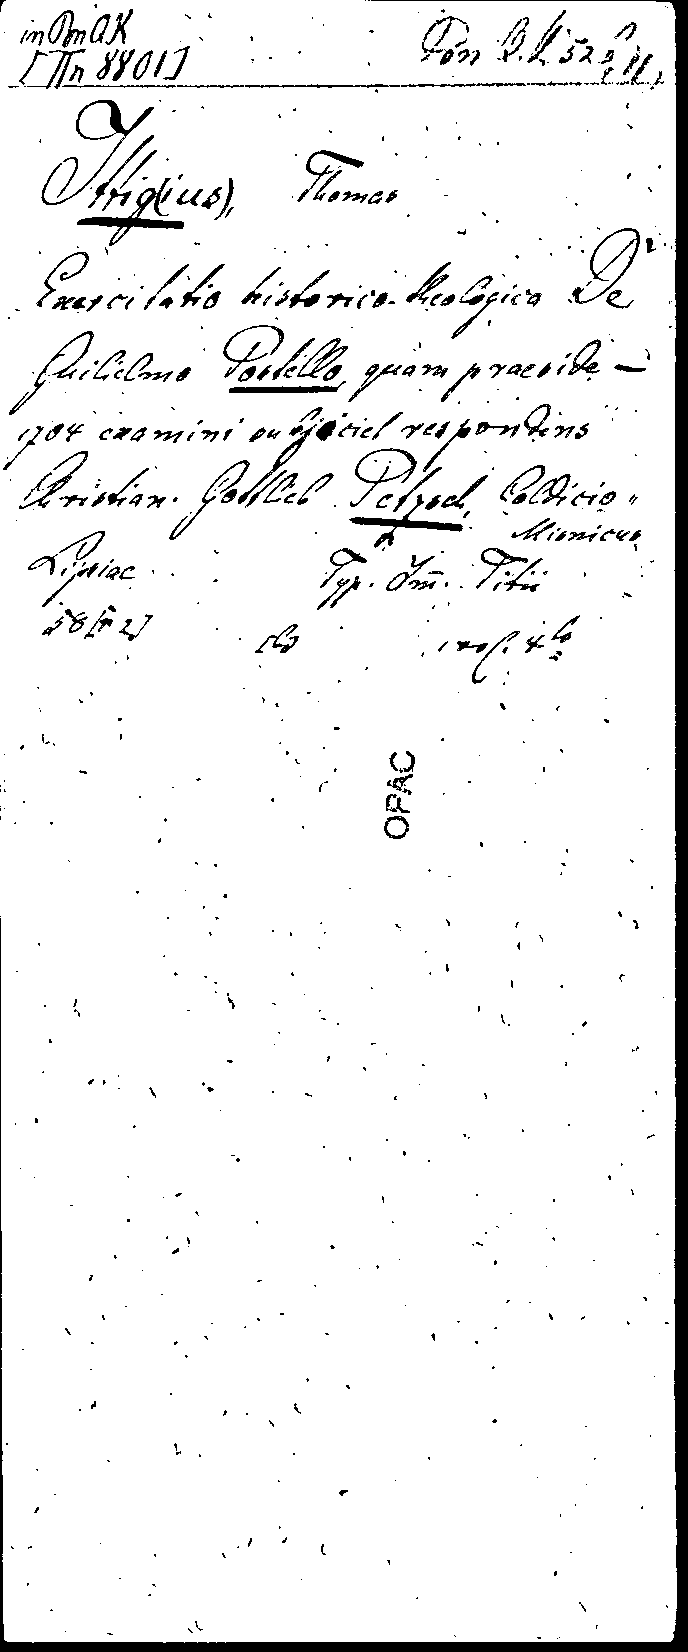 in BnAK
[IIn 8801]
Pon
Ittig(ius), Thomas
Exercitatio historico-theologica De
Guilielmo Postello, quam praeside —
1704 examini subjiciet respondens
Christian. Gottlieb Petzsch, Coldicio-
Misnicus
Lipsiae Typ. Im̅. Titii
58 [+ 2]
4to
OPAC